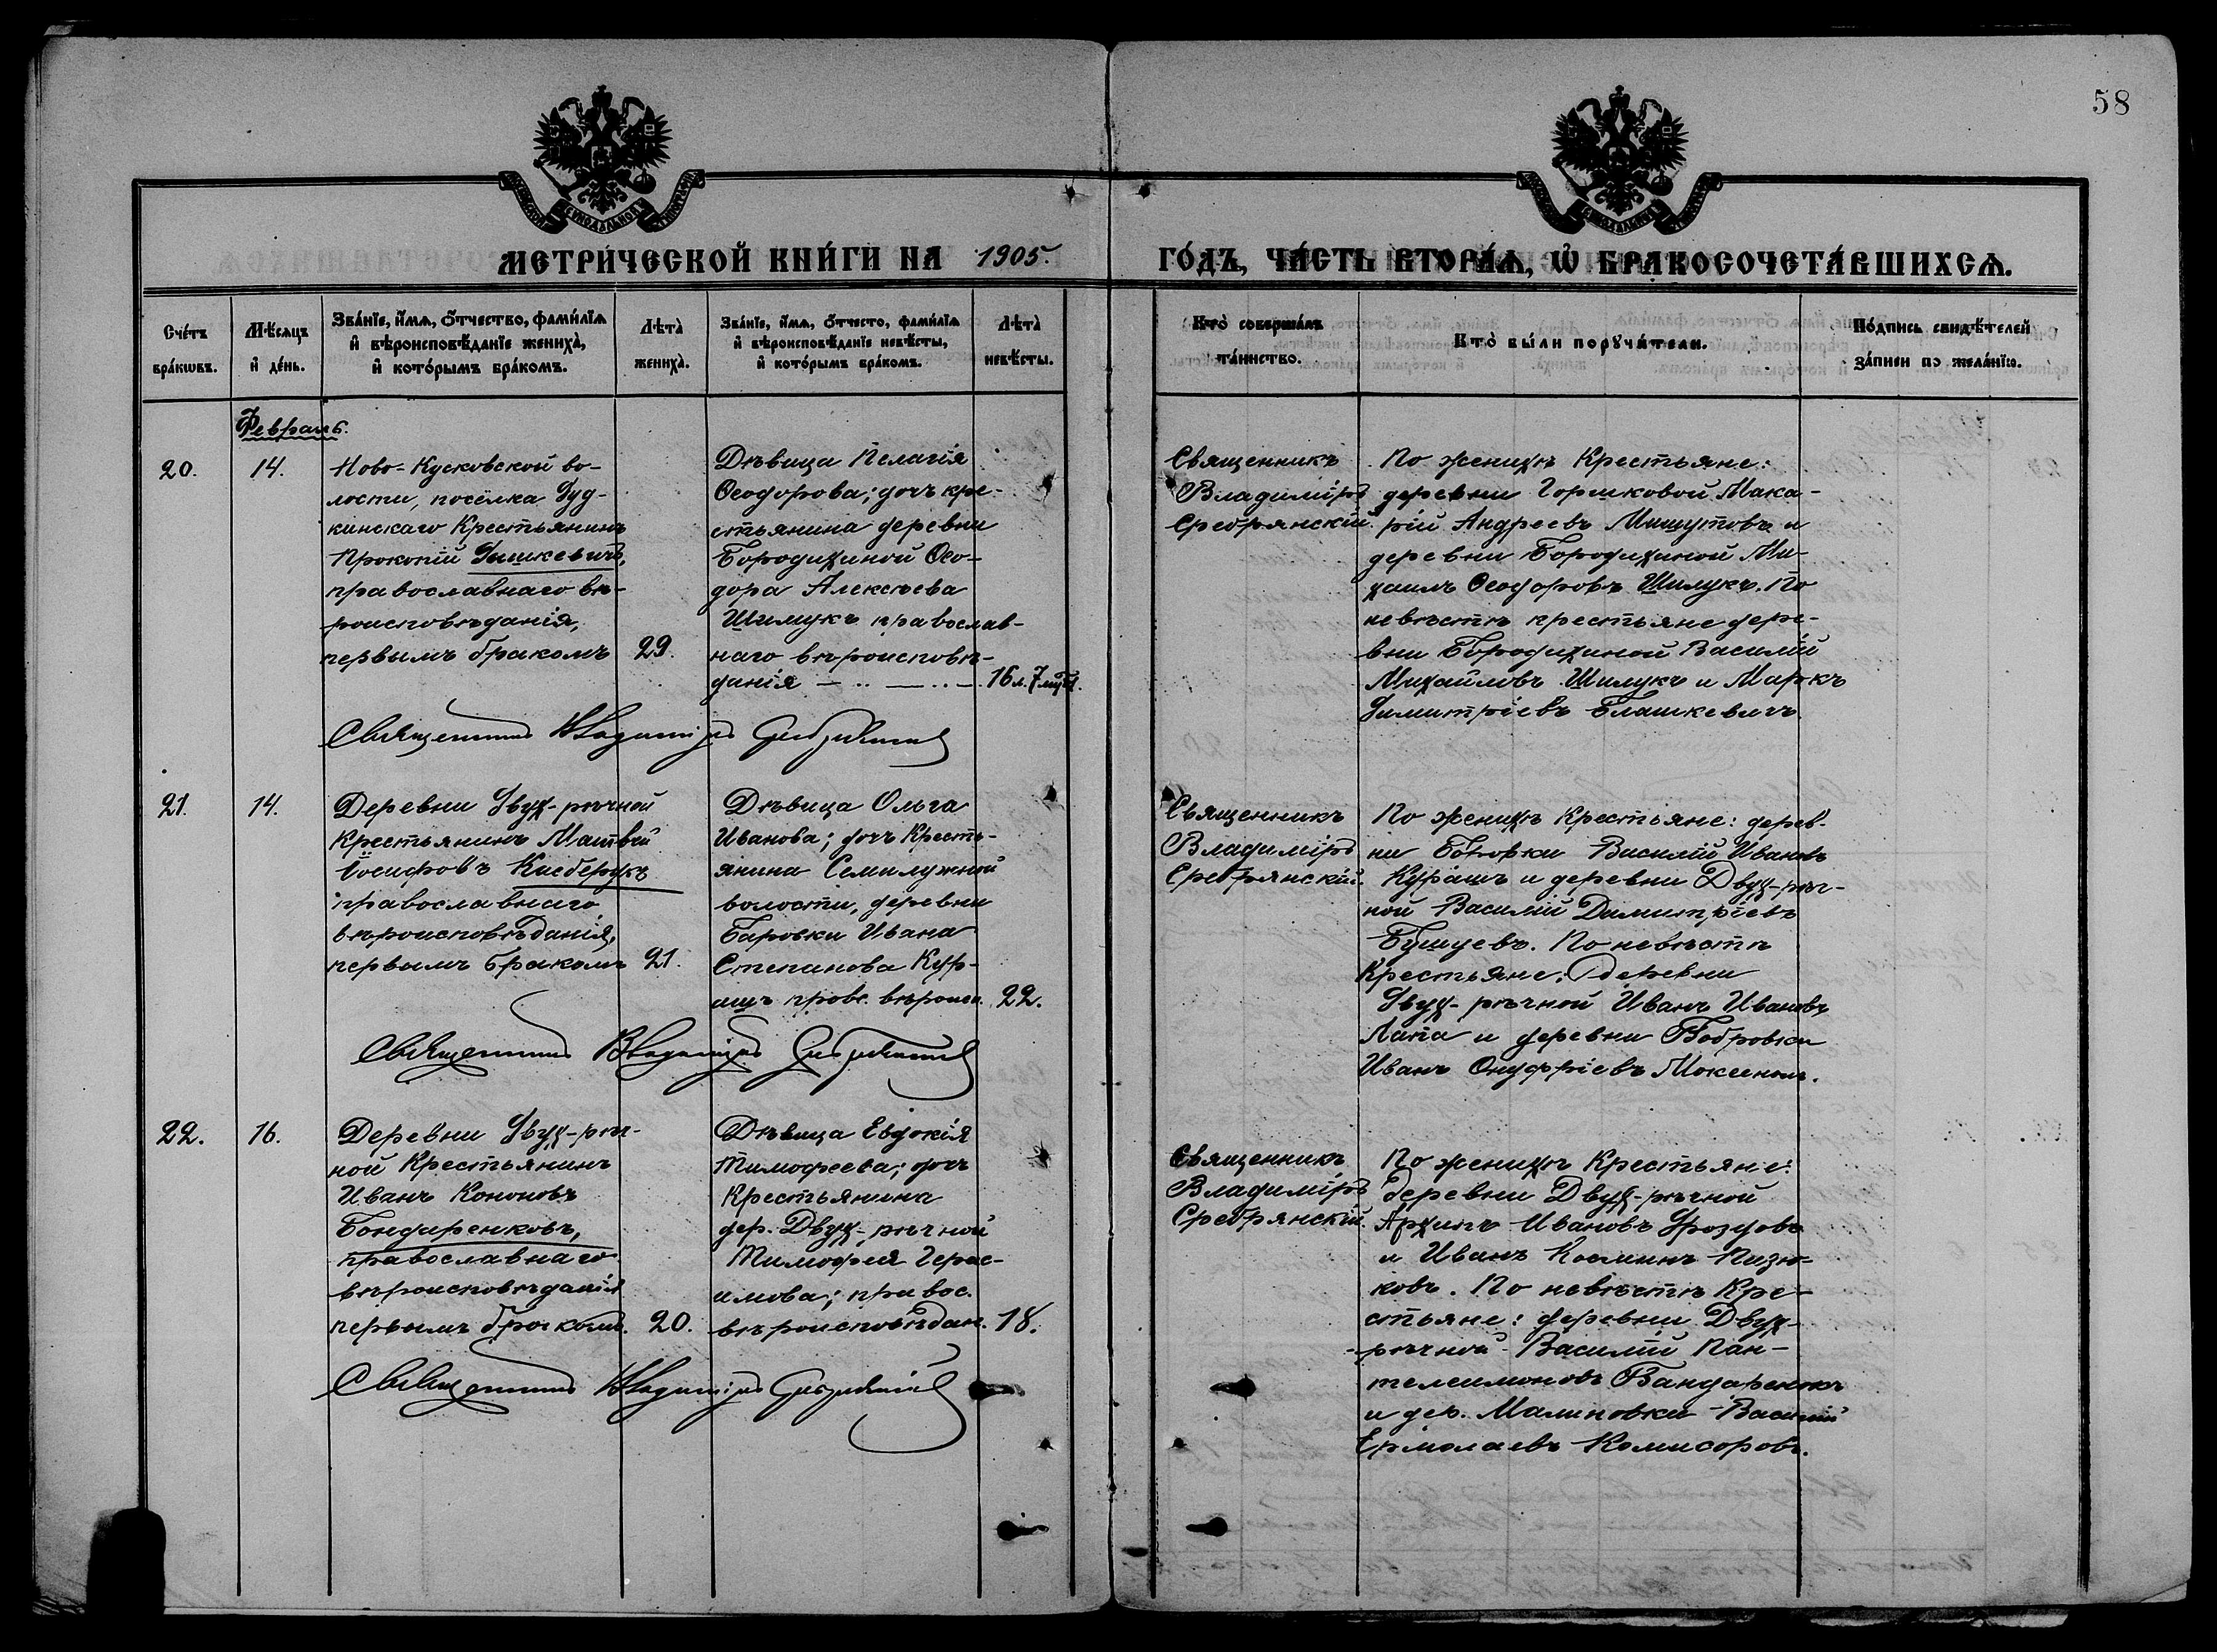 58
МЕТРИ́ЧЕСКОЙ КНИ́ГИ НА 1905. ГО́ДЪ, ЧА́СТЬ ВТОРА́Ѧ, Ѽ БРАКОСОЧЕТА́ВШИХСѦ.
Сче́тъ бра́кѡвъ.
Мѣ́сяцъ и҆ де́нь.
Зва́нїе, и҆́мѧ, ѻ҆́тчество, фами́лїѧ и҆ вѣроисповѣ́данїе жениха̀, и҆ кото́рымъ бра́комъ.
Лѣта̀ жениха̀.
Зва́нїе, и҆́мѧ, ѻ҆́тчесто, фами́лїѧ и҆ вѣроисповѣ́данїе невѣ́сты, и҆ кото́рымъ бра́комъ.
Лѣта̀ невѣ́сты.
Кто̀ соверша́лъ та́инство.
Кто̀ бы́ли порꙋчи́тели.
По́дпись свидѣ́телей за́писи по жела́нїю.
Февраль.
20.
14.
Ново-Кусковской во-
лости, посёлка Гуд-
кинскаго Крестьянинъ
Прокопій Гышкевичъ,
православнаго вѣ-
роисповѣданія,
первымъ бракомъ
29.
Дѣвица Пелагія
Ѳеодорова; дочь кре-
стьянина деревни
Бородихиной Ѳео-
дора Алексѣева
Шилукъ православ-
наго вѣроисповѣ-
данія
16 л. 7 мѣс.
Священникъ
Владиміръ
Сребрянскій.
По женихѣ Крестьяне:
деревни Горшковой Мака-
рій Андреевъ Мишутовъ и
деревни Бородихиной Ми-
хаилъ Ѳеодоровъ Шилукъ. По
невѣстѣ крестьяне дере-
вни Бородихиной Василій
Михайловъ Шилукъ и Маркъ
Димитріевъ Блашкевичъ.
Священникъ Владиміръ Сребрянскій
21.
14.
Деревни Двух-рѣчной
Крестьянинъ Матвѣй
Іосифовъ Кисберукъ
православнаго
вѣроисповѣданія,
первымъ бракомъ
21.
Дѣвица Ольга
Иванова; дочь Кресть-
янина Семилужной
волости, деревни
Баровки Ивана
Степанова Кур-
ашъ прове. вѣроисп.
22.
Священникъ
Владиміръ
Сребрянскій.
По женихѣ Крестьяне: дерев-
ни Боровки Василій Ивановъ
Курашъ и деревни Двух-рѣч-
ной Василій Димитріевъ
Бушуевъ. По невѣстѣ
Крестьяне: деревни
Двух-рѣчной Иванъ Ивановъ
Лапа и деревни Бобровки
Иванъ Онуфріевъ
Священникъ Владиміръ Сребрянскій
22.
16.
Деревни Двух-рѣч-
ной Крестьянинъ
Иванъ Кононовъ
Бондаренковъ,
православнаго
вѣроисповѣданія
первымъ бракомъ.
20.
Дѣвица Евдокія
Тимофеева; дочь
Крестьянина
дер. Двух-рѣчной
Тимофея Герас-
имова; правос.
вѣроисповѣдан.
18.
Священникъ
Владиміръ
Сребрянскій.
По женихѣ Крестьяне:
деревни Двух-рѣчной
Архипъ Ивановъ Дроздовъ
и Иванъ Косминъ Пизю-
ковъ. По невѣстѣ Кре-
стьяне: деревни Двух-
рѣчной Василій Пан-
телеимоновъ Бандаренокъ
и дер. Малиновки Василій
Ермолаевъ Комисоровъ.
Священникъ Владиміръ Сребрянскій